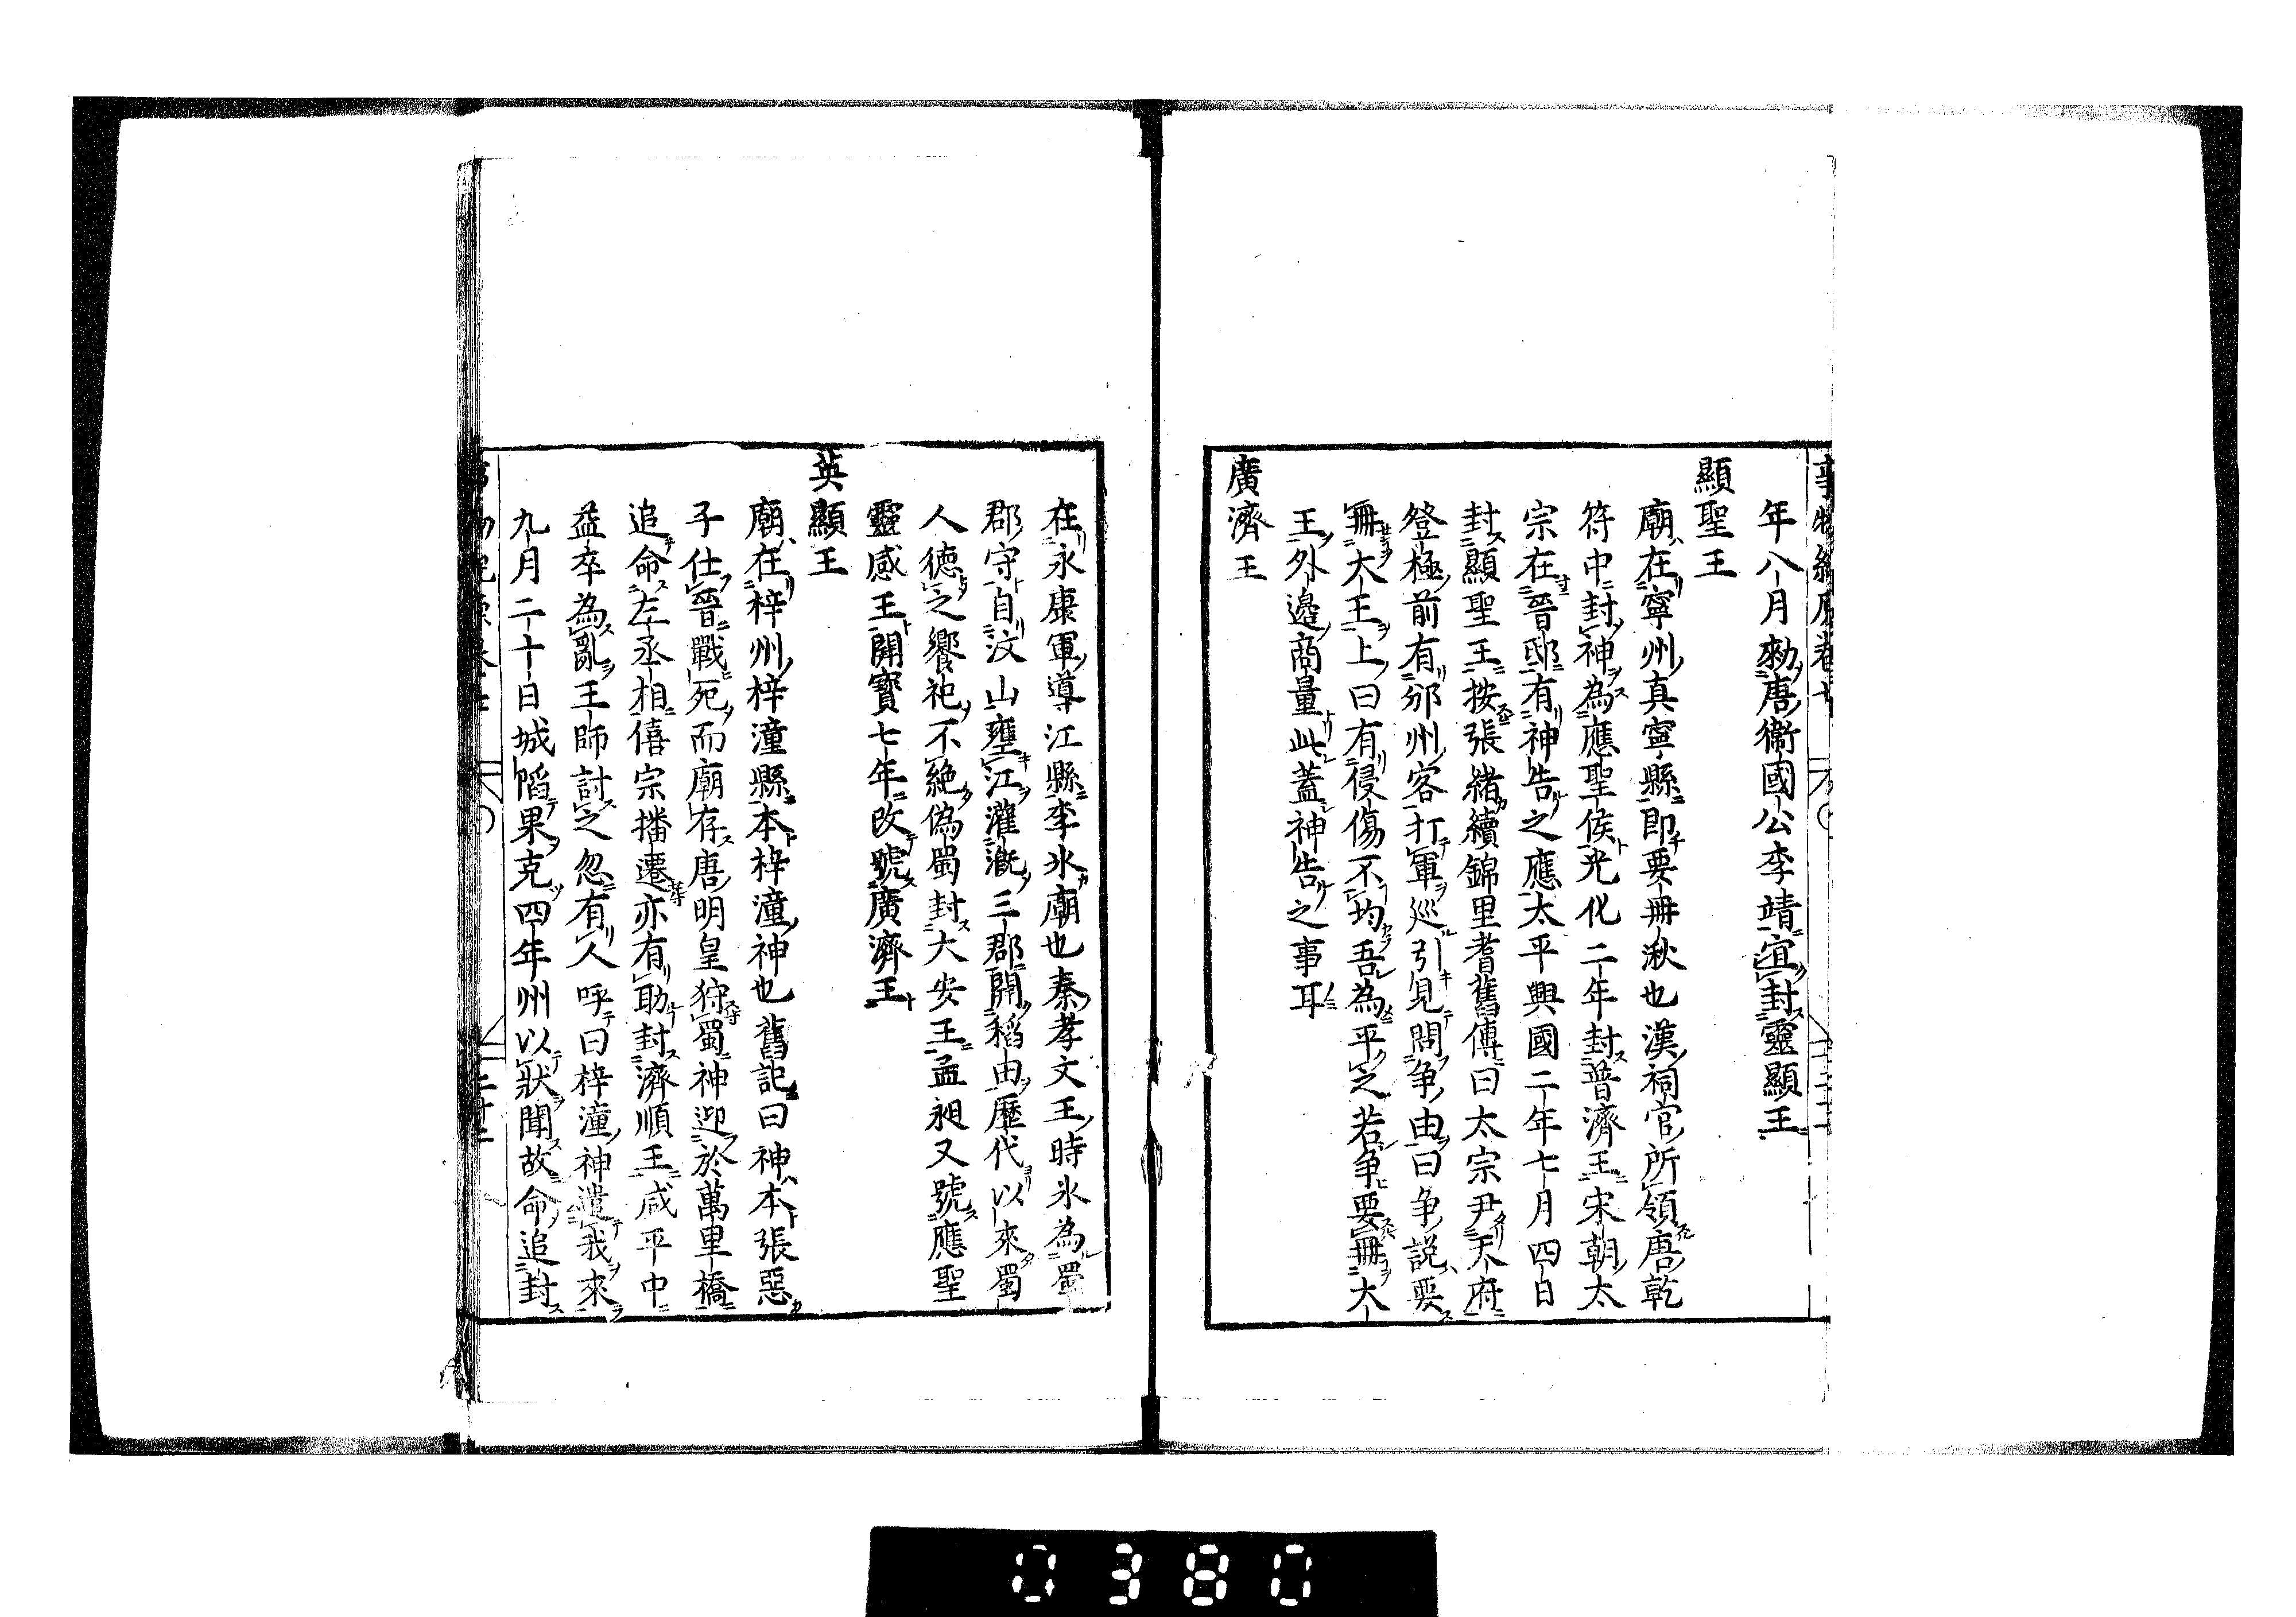 年八月勑唐衞國公李靖宜封靈顯王
顯聖王
廟在寧州真寧縣即要冊湫也漢祠官所領唐乾
符中封神為應聖侯光化二年封普濟王宋朝太
宗在晉邸有神告之應太平興國二年七月四日
封顯聖王按張緒續錦里耆舊傳曰太宗尹天府
登極前有邠州客打軍巡引見問爭由曰爭說要
冊大王上曰有侵傷不均吾為平之若爭要冊大
王外邊商量此蓋神告之事耳
廣濟王
在永康軍導江縣李氷廟也秦孝文王時氷為蜀
郡守自汶山壅江灌漑三郡開稻由歷代以來蜀
人德之饗祀不絶偽蜀封大安王孟昶又號應聖
靈感王開寶七年改號廣濟王
英顯王
廟在梓州梓潼縣本梓潼神也舊記曰神本張惡
子仕晉戰死而廟存唐明皇狩蜀神迎於萬里橋
追命左丞相僖宗播遷亦有助封濟順王咸平中
益卒為亂王師討之忽有人呼曰梓潼神遣我來
九月二十日城䧟果克四年州以狀聞故命追封
0380